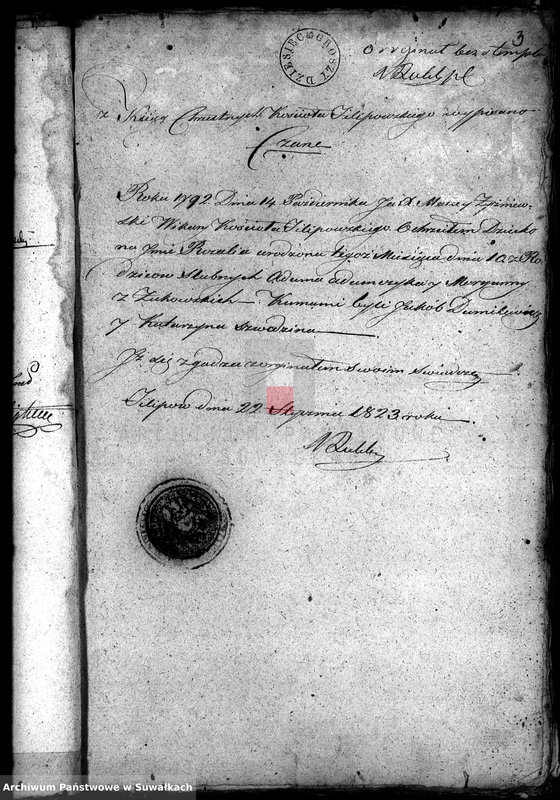 3
DZIESIĘĆ GROSZY
Oryginał bez stempla
z Xsiąg Chrzestnych Kościoła Filipowskiego wypisano
Roku 1792 Dnia 14 Października Ja X Maciey
Wikary Kościoła Filipowskiego Ochrzciłem Dziecko
na Imie Rozalia urodzona tegoż Miesiąca dnia 10 z Ro-
dziców Slubnych Adama Adamczyka y Maryanny
z Żukowskich. Kumami byli Jakób
y Katarzyna
Jż się zgadza z orginałem Swoim Swiadczę
Filipow dnia 22 Stycznia 1823 roku
Archiwum Państwowe w Suwałkach